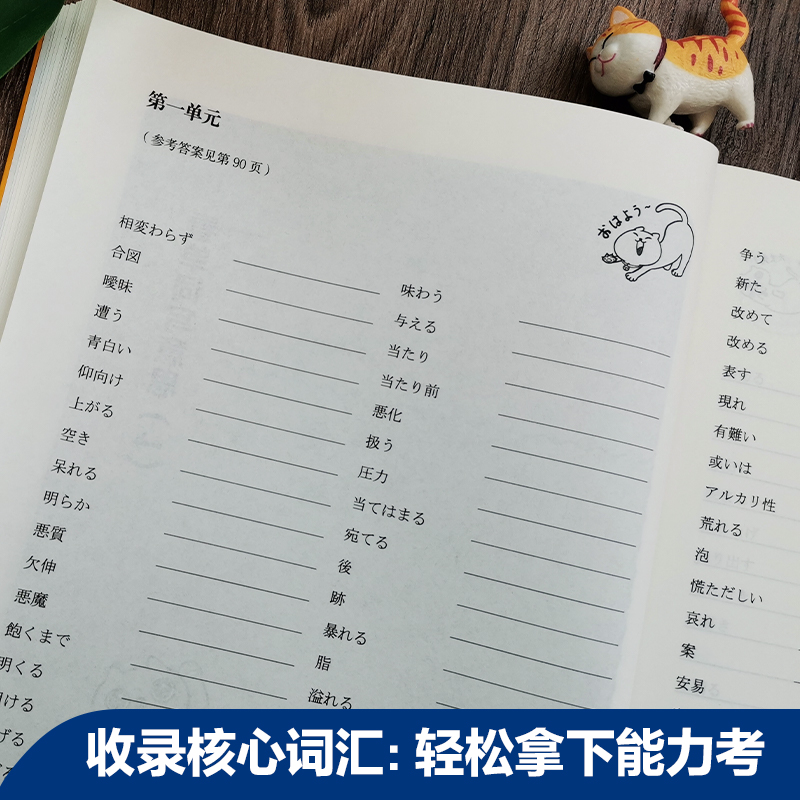 第一单元
（参考答案见第90页）
おはよう~
相变わらず
合図
曖昧
遭う
青白い
仰向け
上がる
空き
呆れる
明らか
悪質
欠伸
悪魔
飽くまで
明くる
味わう
与える
当たり
当たり前
悪化
扱う
圧力
当てはまる
宛てる
後
跡
暴れる
脂
溢れる
争う
新た
改めて
改める
表す
現れ
有難い
或いは
アルカリ性
荒れる
泡
慌ただしい
哀れ
案
安易
收录核心词汇：轻松拿下能力考